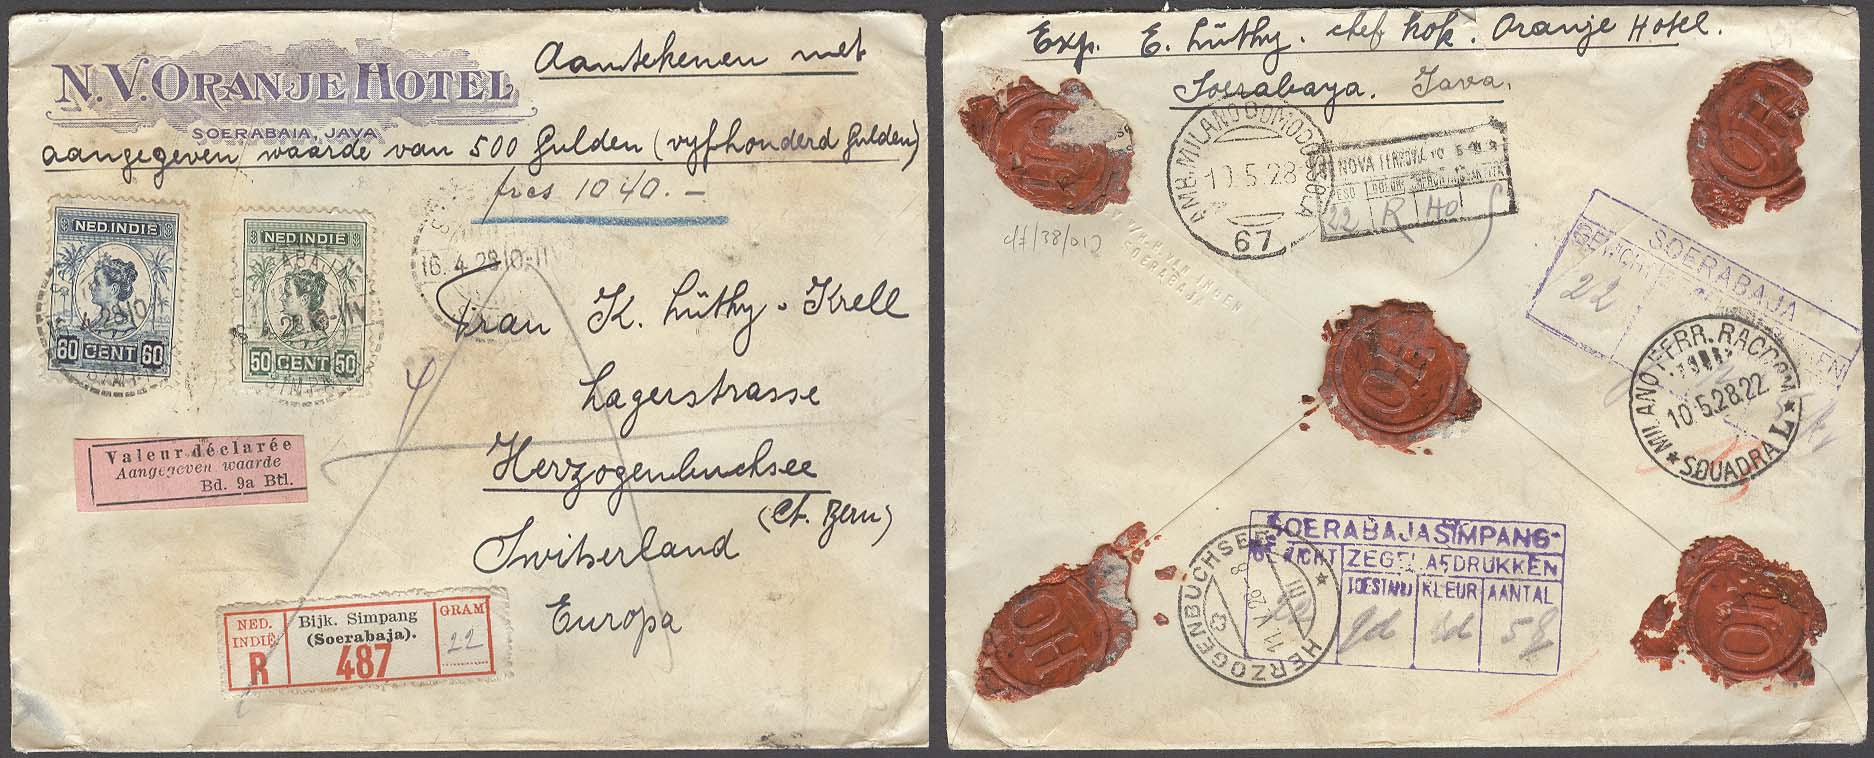 N.V. ORANJE HOTEL
SOERABAIA, JAVA
Aantekenen met
aangegeven waarde van 500 Gulden (vyfhonderd Gulden)
frcs 1040.-
NED. INDIE
60 CENT 60
NED. INDIE
50 CENT 50
16.4.28.10-11V
Frau K. Lüthy-Krell
Lagerstrasse
Herzogenbuchsee
(Ct. Bern)
Switserland
Europa
Valeur déclarée
Aangegeven waarde
Bd. 9a Btl.
NED. INDIË
R
Bijk. Simpang
(Soerabaja).
487
GRAM
22
Exp. E. Lüthy. chef kok. Oranje Hotel.
Soerabaya. Java.
AMB. MILANO DOMODOSSOLA
10.5.28
67
22 R
SOERABAJA
GEWICHT
22
OH
OH
OH
OH
OH
VAN INGEN
SOERABAJA
MILANO FERR. RACCOM
10.5.28.22
SQUADRA L
SOERABAJASIMPANG-
GEWICHT ZEGELAFDRUKKEN
TOESTAND KLEUR AANTAL
gd rd 5
HERZOGENBUCHSEE
11.V.28.8
HERZOGENBUCHSEE